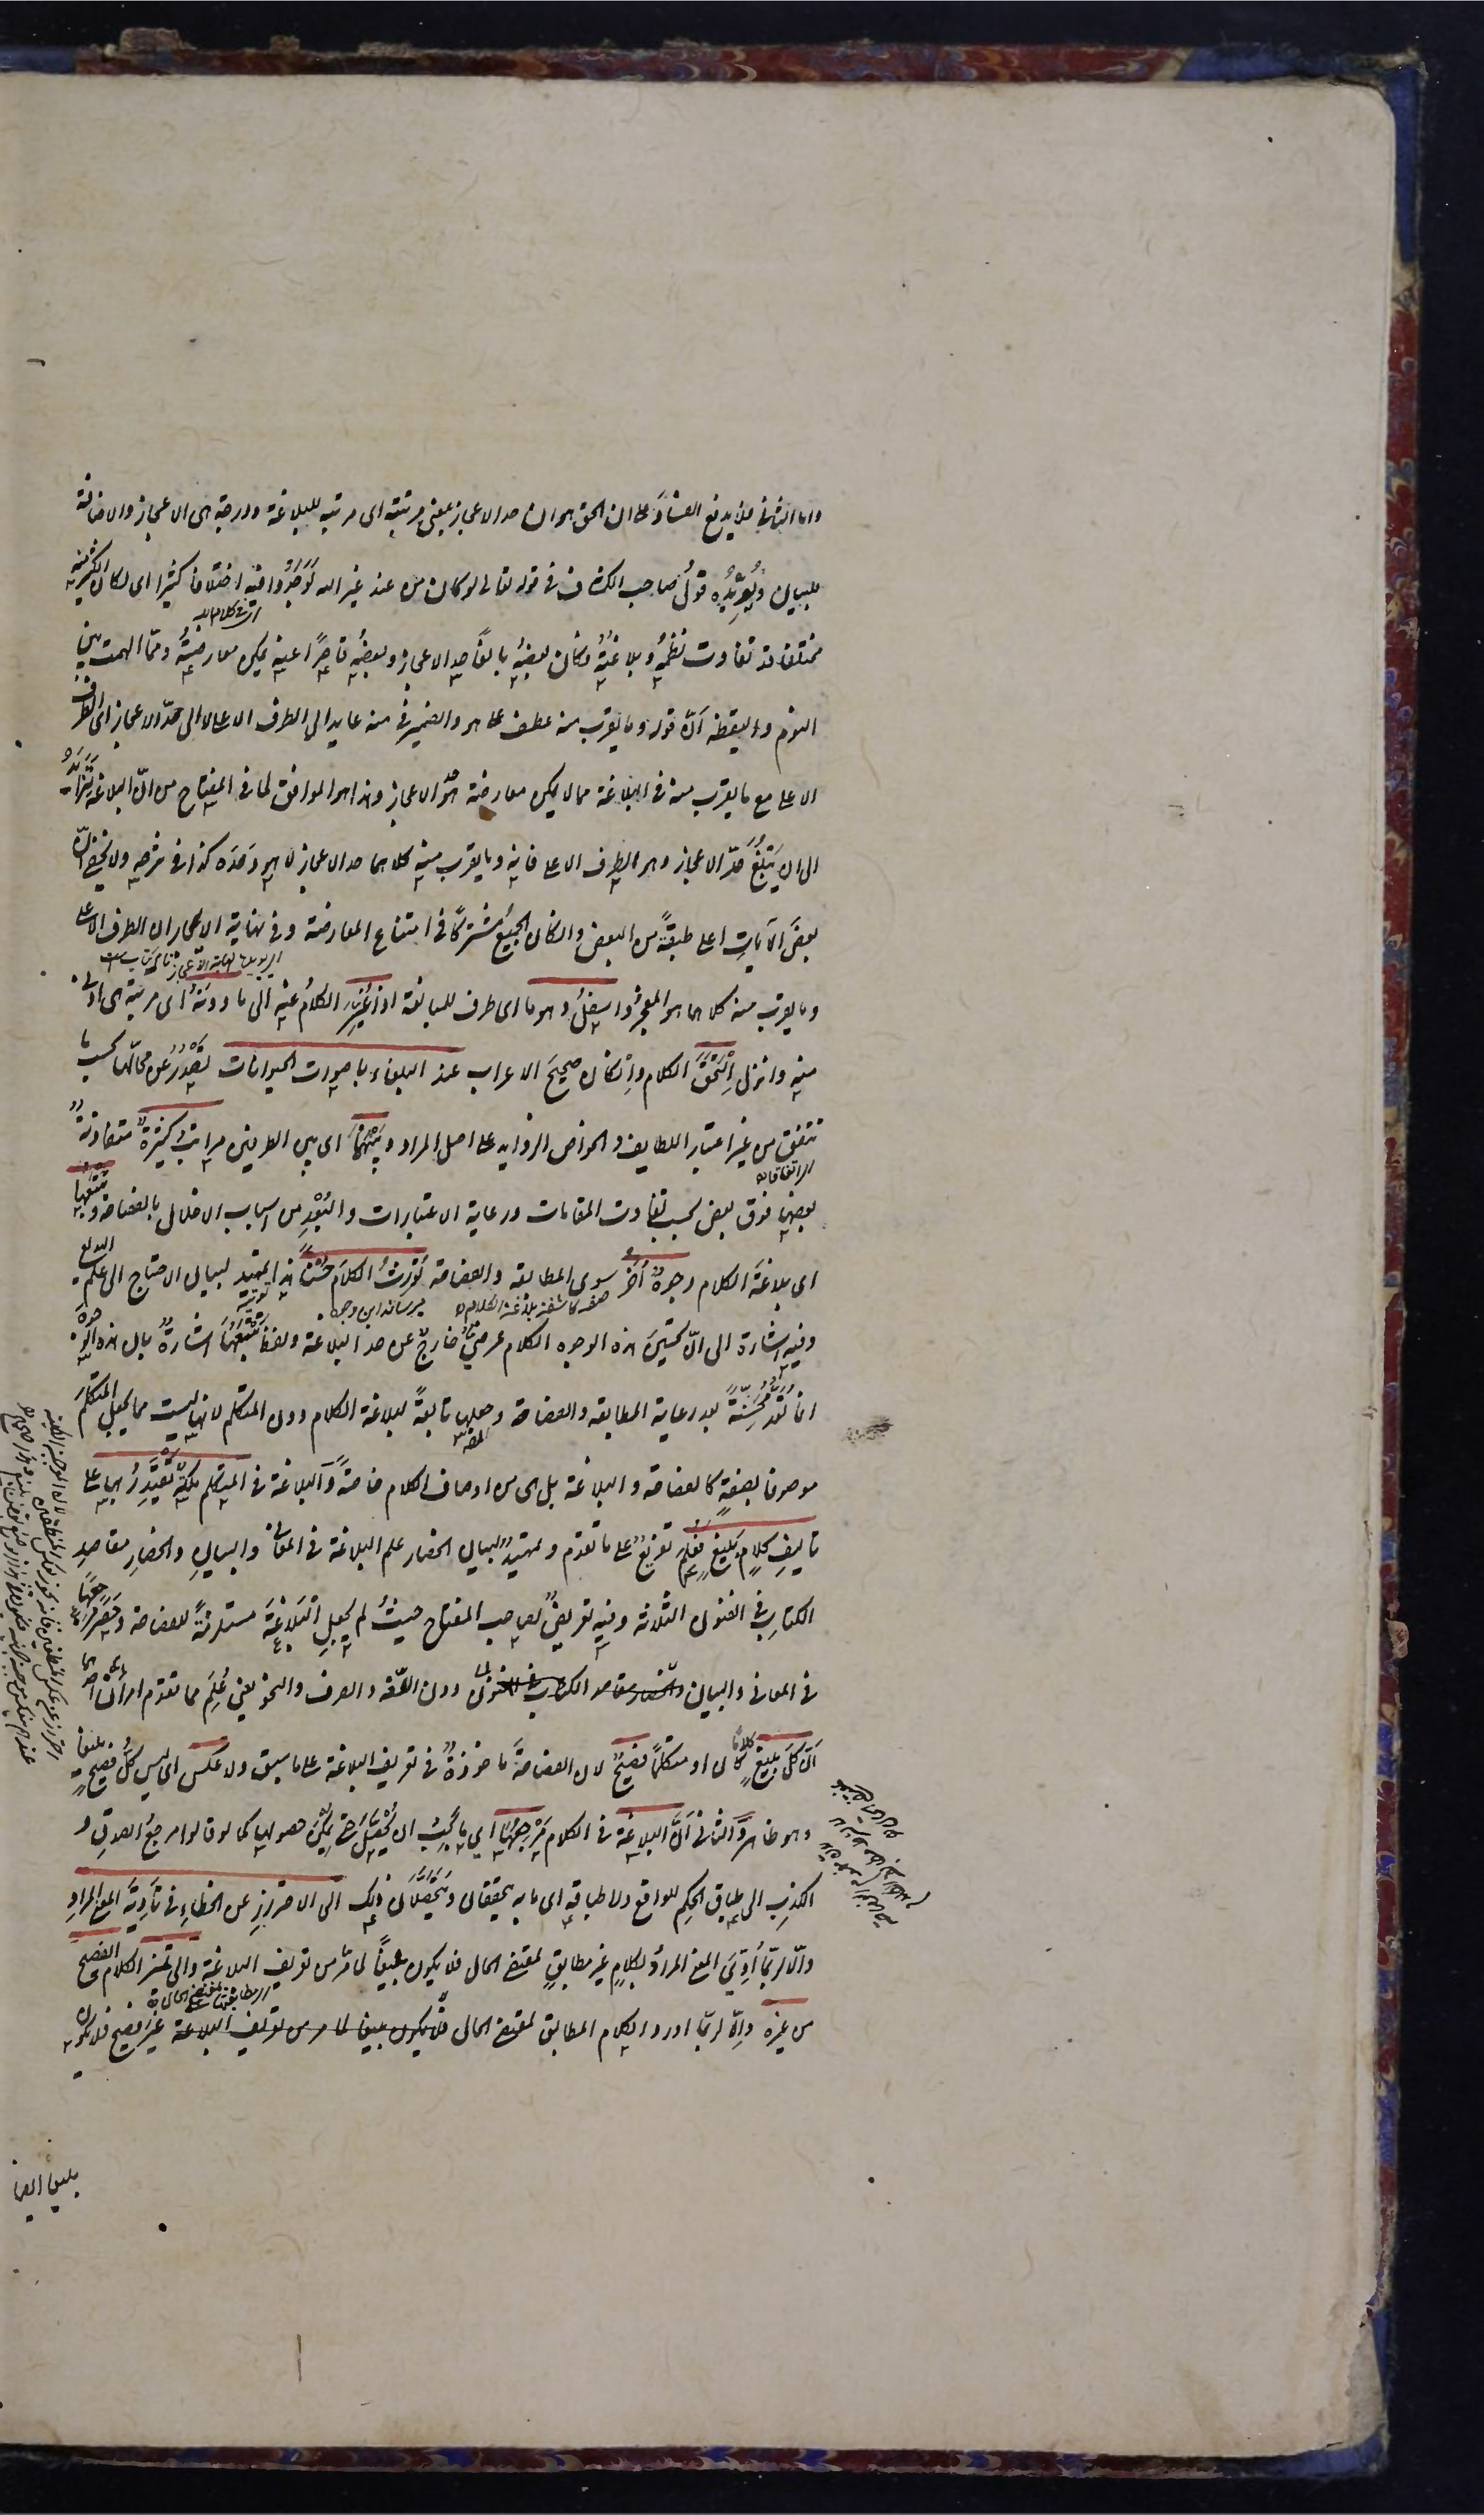 واما الثاني فلا يدفع الفساد على ان الحق هو ان حد الاعجاز بمعنى مرتبته اى مرتبة للبلاغة ودرجة هى الاعجاز والاضافة
للبيان ويُؤيّدُه قولُ صاحب الكشاف في قوله تعالى لو كان من عند غير الله لَوَجَدُوا فيه اختلافا كثيرا اى لكان الكثير منه
مختلفا قد تفاوت نظمُه وبلاغتُه وكان بعضُه بالغًا حد الاعجاز وبعضُه قاصرًا عنه يمكن معارضتُه ومما الهمت بين
النوم واليقظة انّ قوله وما يقرب منه عطف على هو والضمير في منه عايد الى الطرف الاعلى لا الى حدّ الاعجاز اى الطرف
الاعلى مع ما يقرب منه في البلاغة مما لا يمكن معارضته هو حد الاعجاز وهذا هو الموافق لما في المفتاح من انّ البلاغة تتزايد
الى ان يَبْلُغَ حَدّ الاعجاز وهو الطرف الاعلى فانه وما يقرب منه كلاهما حد الاعجاز لا هو وَحدَه كذا في شرحه ولا يخفى انّ
بعضَ الآياتِ اعلى طبقةً من البعض وان كان الجميعُ مشتركًا في امتناع المعارضة وفي نهاية الاعجاز ان الطرف الاعلى
وما يقرب منه كلاهما هو المعجز واسفلُ وهو ما اى طرف للبلاغة اذا غُيّر الكلامُ عنه الى ما دونَهُ اى مرتبة هى ادنى
منه وانزل اِلْتَحَقَ الكلام واِنْ كان صحيحَ الاعراب عند البلغاء باصوات الحيوانات تَصْدُرُ عن محالّها بحسب ما
تتفق من غير اعتبار اللطايف والخواص الزوايد على اصل المراد وبَيْنَهُمَا اى بين الطرفين مراتبُ كثيرةٌ متفاوتةٌ
بعضها فوق بعض بحسب تفاوت المقامات ورعاية الاعتبارات والبُعْدِ من اسباب الاخلال بالفصاحة ويتبعها
اى بلاغةَ الكلام وجوهٌ اُخَرُ سوى المطابقة والفصاحة تُورِثُ الكلامَ حُسْنًا هذا تمهيد لبيان الاحتياج الى علم البديع
وفيه اشارة الى انّ تحسينَ هذه الوجوه الكلام عرضيٌّ خارجٌ عن حد البلاغة ولفظ تَتْبَعُهَا اشارةٌ بان هذه الوجوه
انما تُعَدُّ مُحَسِّنَةً بعد رعاية المطابقة والفصاحة وجعلها تابعةً لبلاغة الكلام دون المتكلم لانها ليست مما يجعل المتكلمَ
موصوفا بصفةٍ كالفصاحة والبلاغة بل هى من اوصاف الكلام خاصةً وَالبلاغة في المتكلم ملكةٌ يَقْتَدِرُ بها على
تاليفِ كلامٍ بَليغٍ فَعُلِمَ تفريعٌ على ما تقدم وتمهيدٌ لبيان انحصار علم البلاغة في المعانى والبيانِ وانحصارِ مقاصدِ
الكتابِ في الفنون الثلاثة وفيه تعريضٌ لصاحب المفتاح حيثُ لم يجعلِ البَلاغةَ مستلزمةً للفصاحة وحَصَرَ مرجعَها
في المعانى والبيان دون اللغة والصرف والنحو يعنى عُلِمَ مما تقدم امرانِ احدهما
اَنّ كلَ بليغٍ كلامًا كان او متكلمًا فصيحٌ لان الفصاحةَ ماخوذةٌ في تعريف البلاغة على ما سبق ولا عكس اى ليس كلُ فصيحٍ بليغًا
وهو ظاهر وَالثانى اَنّ البلاغة في الكلام مَرْجِعُهَا اى ما يَجبُ ان يُحَصَّلَ حتى يمكنَ حصولها كما لو قالوا مرجعُ الصدقِ و
الكذبِ الى طباق الحكم للواقع ولا طباقِه اى ما به يتحققان ويتحصَّلان ذلك الى الاحترازِ عن الخطاءِ في تَأدِيةِ المعنى المرادِ
والّا لربّما اُدّىَ المعنى المرادُ بكلامٍ غير مطابقٍ لمقتضى الحال فلا يكون بليغًا لما مرّ من تعريف البلاغة والى تمييز الكلام الفصيح
من غيرِه واِلّا لربّما اورد الكلام المطابق لمقتضى الحال غيرَ فصيح فلا يكون
بليغا ايضا